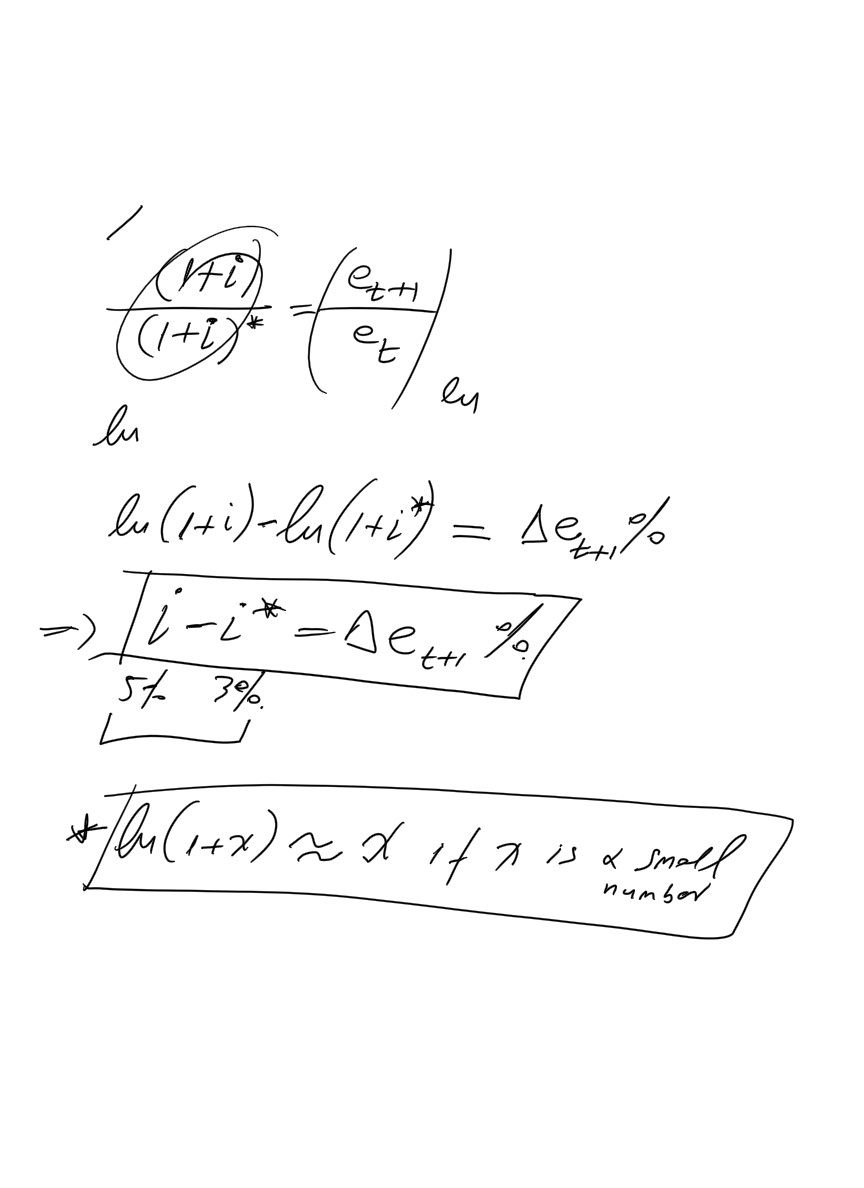 (1+i) / (1+i)* = (e_{t+1} / e_t)
ln
ln
ln(1+i) - ln(1+i*) = Δe_{t+1} %
=> i - i* = Δe_{t+1} %.
5% 3%.
* ln(1+x) ≈ x if x is a small
number